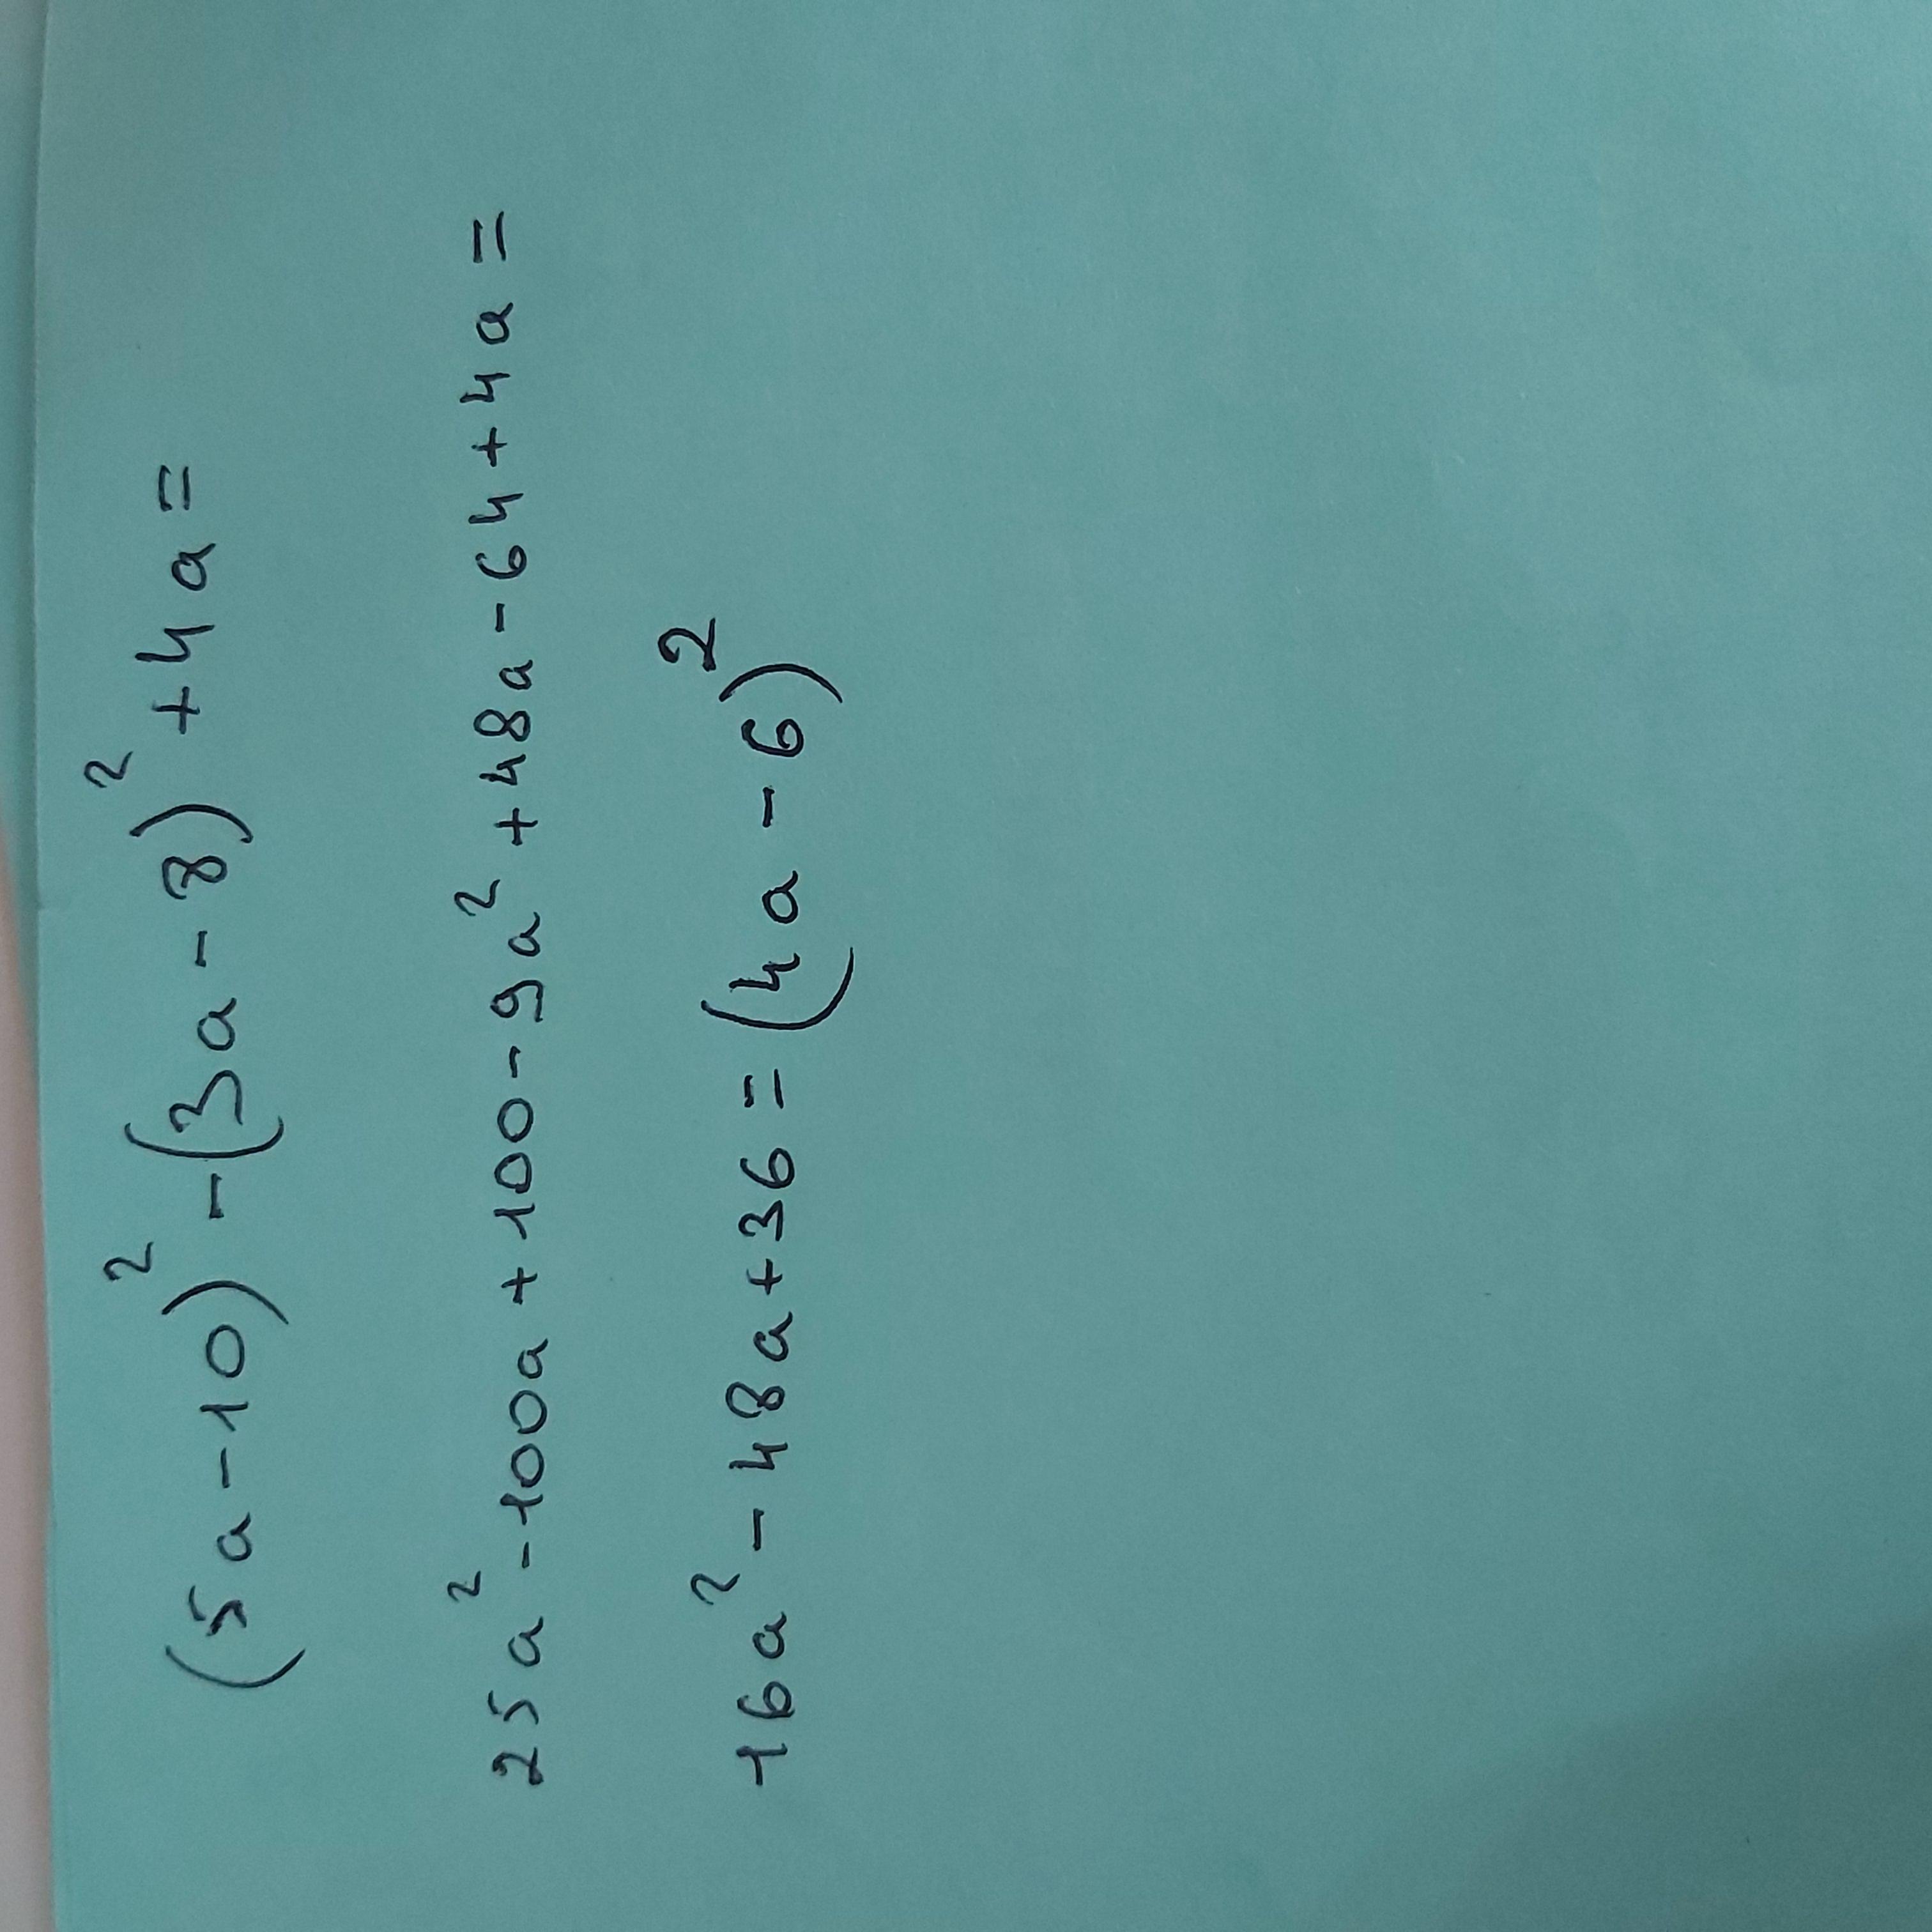 (5a-10)² -(3a-8)² +4a=
25a²-100a+100-9a²+48a-64+4a=
16a²-48a+36=(4a-6)²